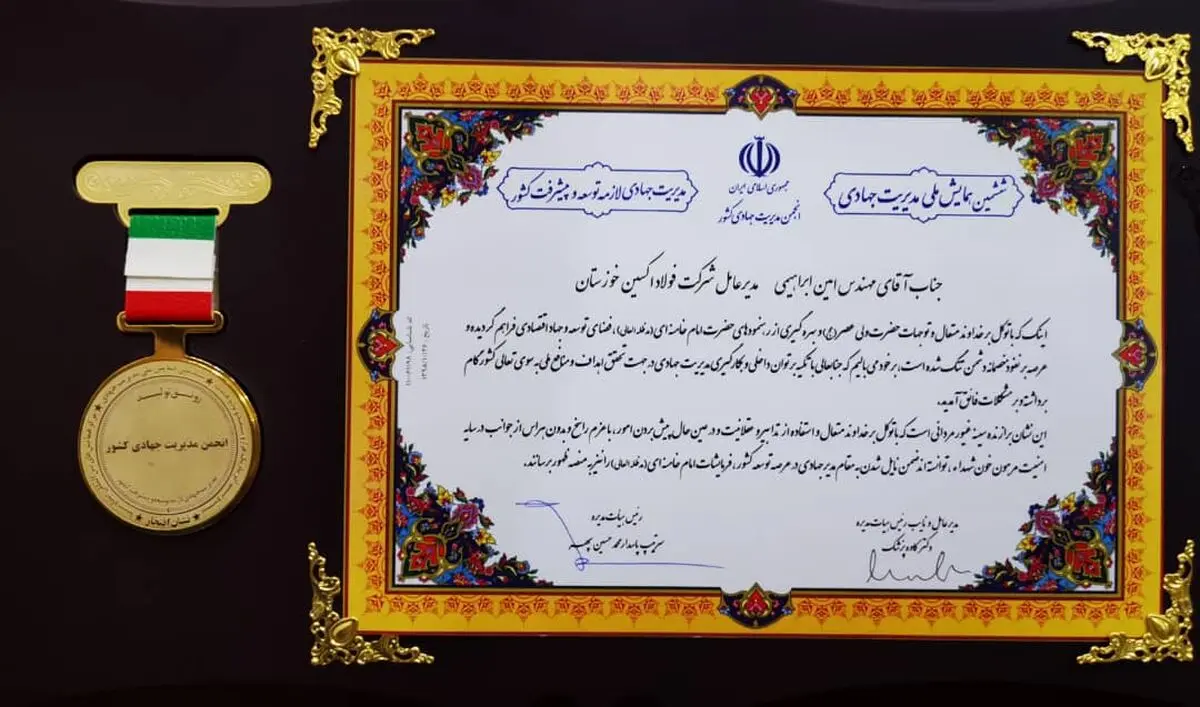 ششمین همایش ملی مدیریت جهادی
جمهوری اسلامی ایران
انجمن مدیریت جهادی کشور
مدیریت جهادی لازمه توسعه و پیشرفت کشور
جناب آقای مهندس امین ابراهیمی مدیرعامل شرکت فولاد اکسین خوزستان
اینک که با توکل بر خداوند متعال و توجهات حضرت ولی عصر(عج) و بهره گیری از رهنمودهای حضرت امام خامنه ای(مدظله العالی)، فضای توسعه و جهاد اقتصادی فراهم گردیده و
عرصه بر نفوذ خصمانه دشمن تنگ شده است، بر خود می بالیم که جنابعالی با تکیه بر توان داخلی و بکارگیری مدیریت جهادی در جهت تحقق اهداف و منافع ملی به سوی تعالی کشور گام
برداشته و بر مشکلات فائق آمدید.
این نشان برازنده سینه غیور مردانی است که با توکل بر خداوند متعال و استفاده از تدابیر و عقلانیت و در عین حال پیش بردن امور، با عزم راسخ و بدون هراس از جوانب در سایه
امنیت مرهون خون شهداء، توانسته اند ضمن نایل شدن به مقام مدیر جهادی در عرصه توسعه کشور، فرمایشات امام خامنه ای(مدظله العالی) را نیز به منصه ظهور برسانند.
مدیرعامل و نایب رئیس هیات مدیره
دکتر کاوه پزشک
رئیس هیات مدیره
سرتیپ پاسدار محمد حسین سپهر
تاریخ: ۱۳۹۸/۱۰/۲۶
رونق تولید
انجمن مدیریت جهادی کشور
نشان افتخار